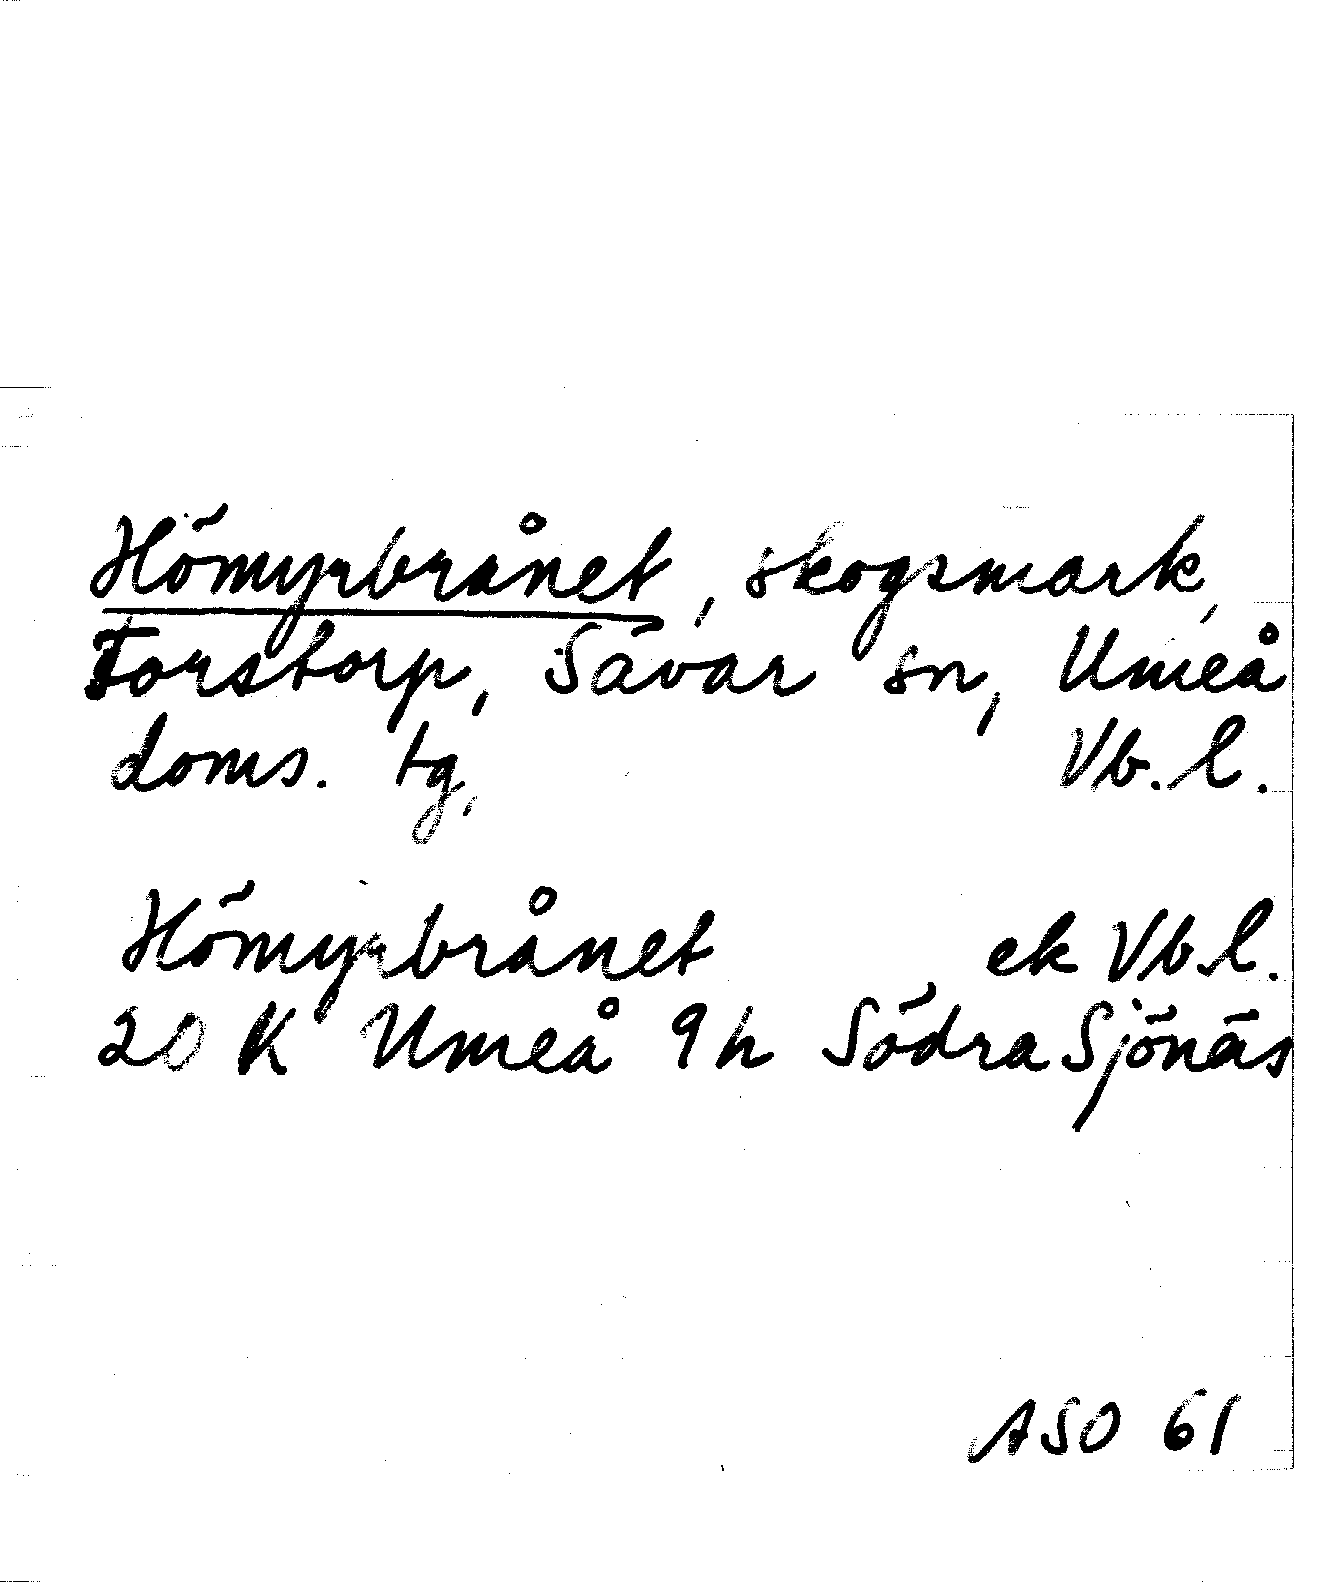 Hömyrbrånet, skogsmark,
Forstorp, Sävar sn, Umeå
doms. tg, Vb. l.
Hömyrbrånet ek Vb. l.
20 K Umeå 9 h Södra Sjönäs
ASO 61